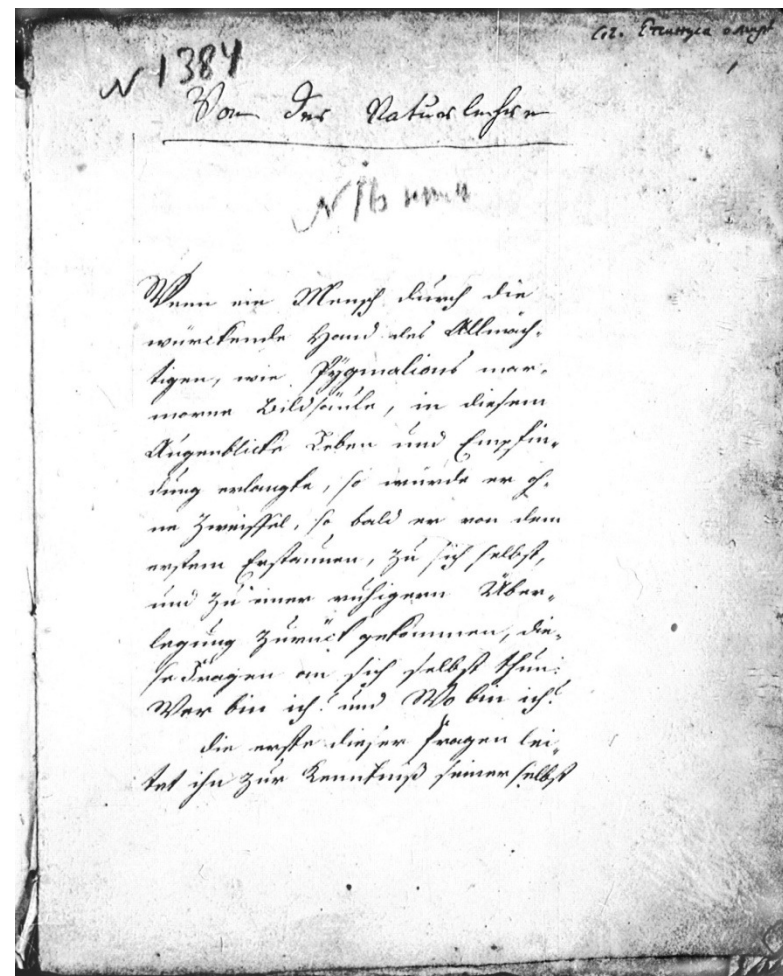 N 1384
Von der Naturlehre
Wenn ein Mensch durch die
würckende Hand des Allmäch-
tigen, wie Pygmalions mar-
morne Bildsäule, in diesem
Augenblicke Leben und Empfin-
dung erlangte, so würde er oh-
ne Zweiffel, so bald er von dem
erstem Erstaunen, zu sich selbst,
und zu einer ruhigern Über-
legung zurück gekommen, die-
se Fragen an sich selbst thun:
Wer bin ich? und Wo bin ich?
die erste dieser Fragen lei-
tet ihn zur Kenntniß seiner selbst